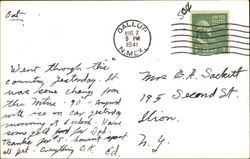 Oct
GALLUP
AUG 2
5 PM
1941
N. MEX.
Went through this
country yesterday. It
was some change from
the Mtns - 90°
will ice on car yesterday
morning at 6 o'clock. Have
some gold for Dad.
Thanks for
all get. Everything O.K. Ed.
Mrs B. A. Sackett
195 Second St
Ilion,
N. Y.